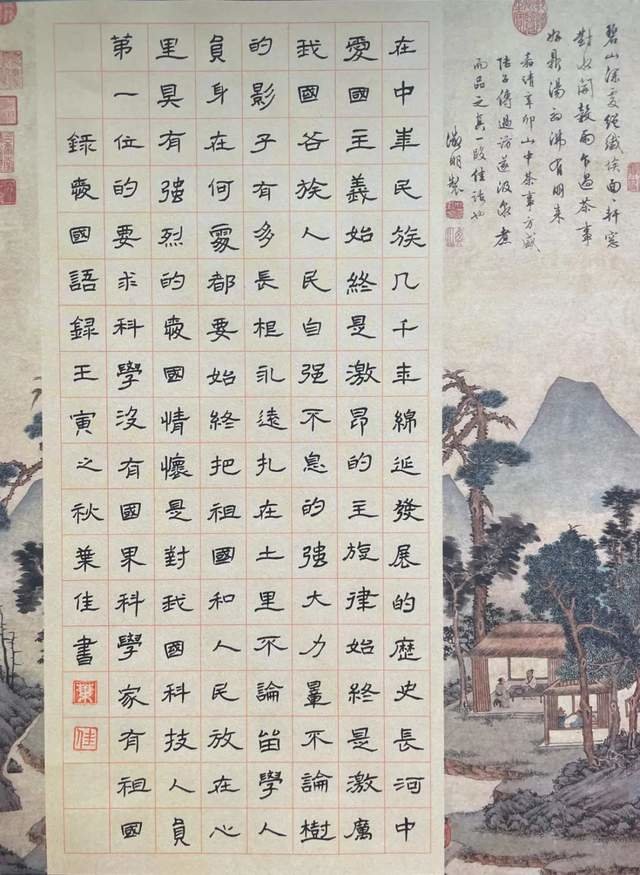 碧山深處絕纖埃面面軒窗
對水開穀雨乍過茶事
好鼎湯初沸有朋來
嘉靖辛卯山中茶事方盛
陸子傳過訪遂汲泉煮
而品之真一段佳話也
徵明製
在中華民族几千年綿延發展的歷史長河中
愛國主義始終是激昂的主旋律始終是激厲
我國各族人民自强不息的强大力量不論樹
的影子有多長根永遠扎在土里不論留學人
員身在何處都要始終把祖國和人民放在心
里具有强烈的愛國情懷是對我國科技人員
第一位的要求科學沒有國果科學家有祖國
錄愛國語録壬寅之秋葉佳書
葉
佳